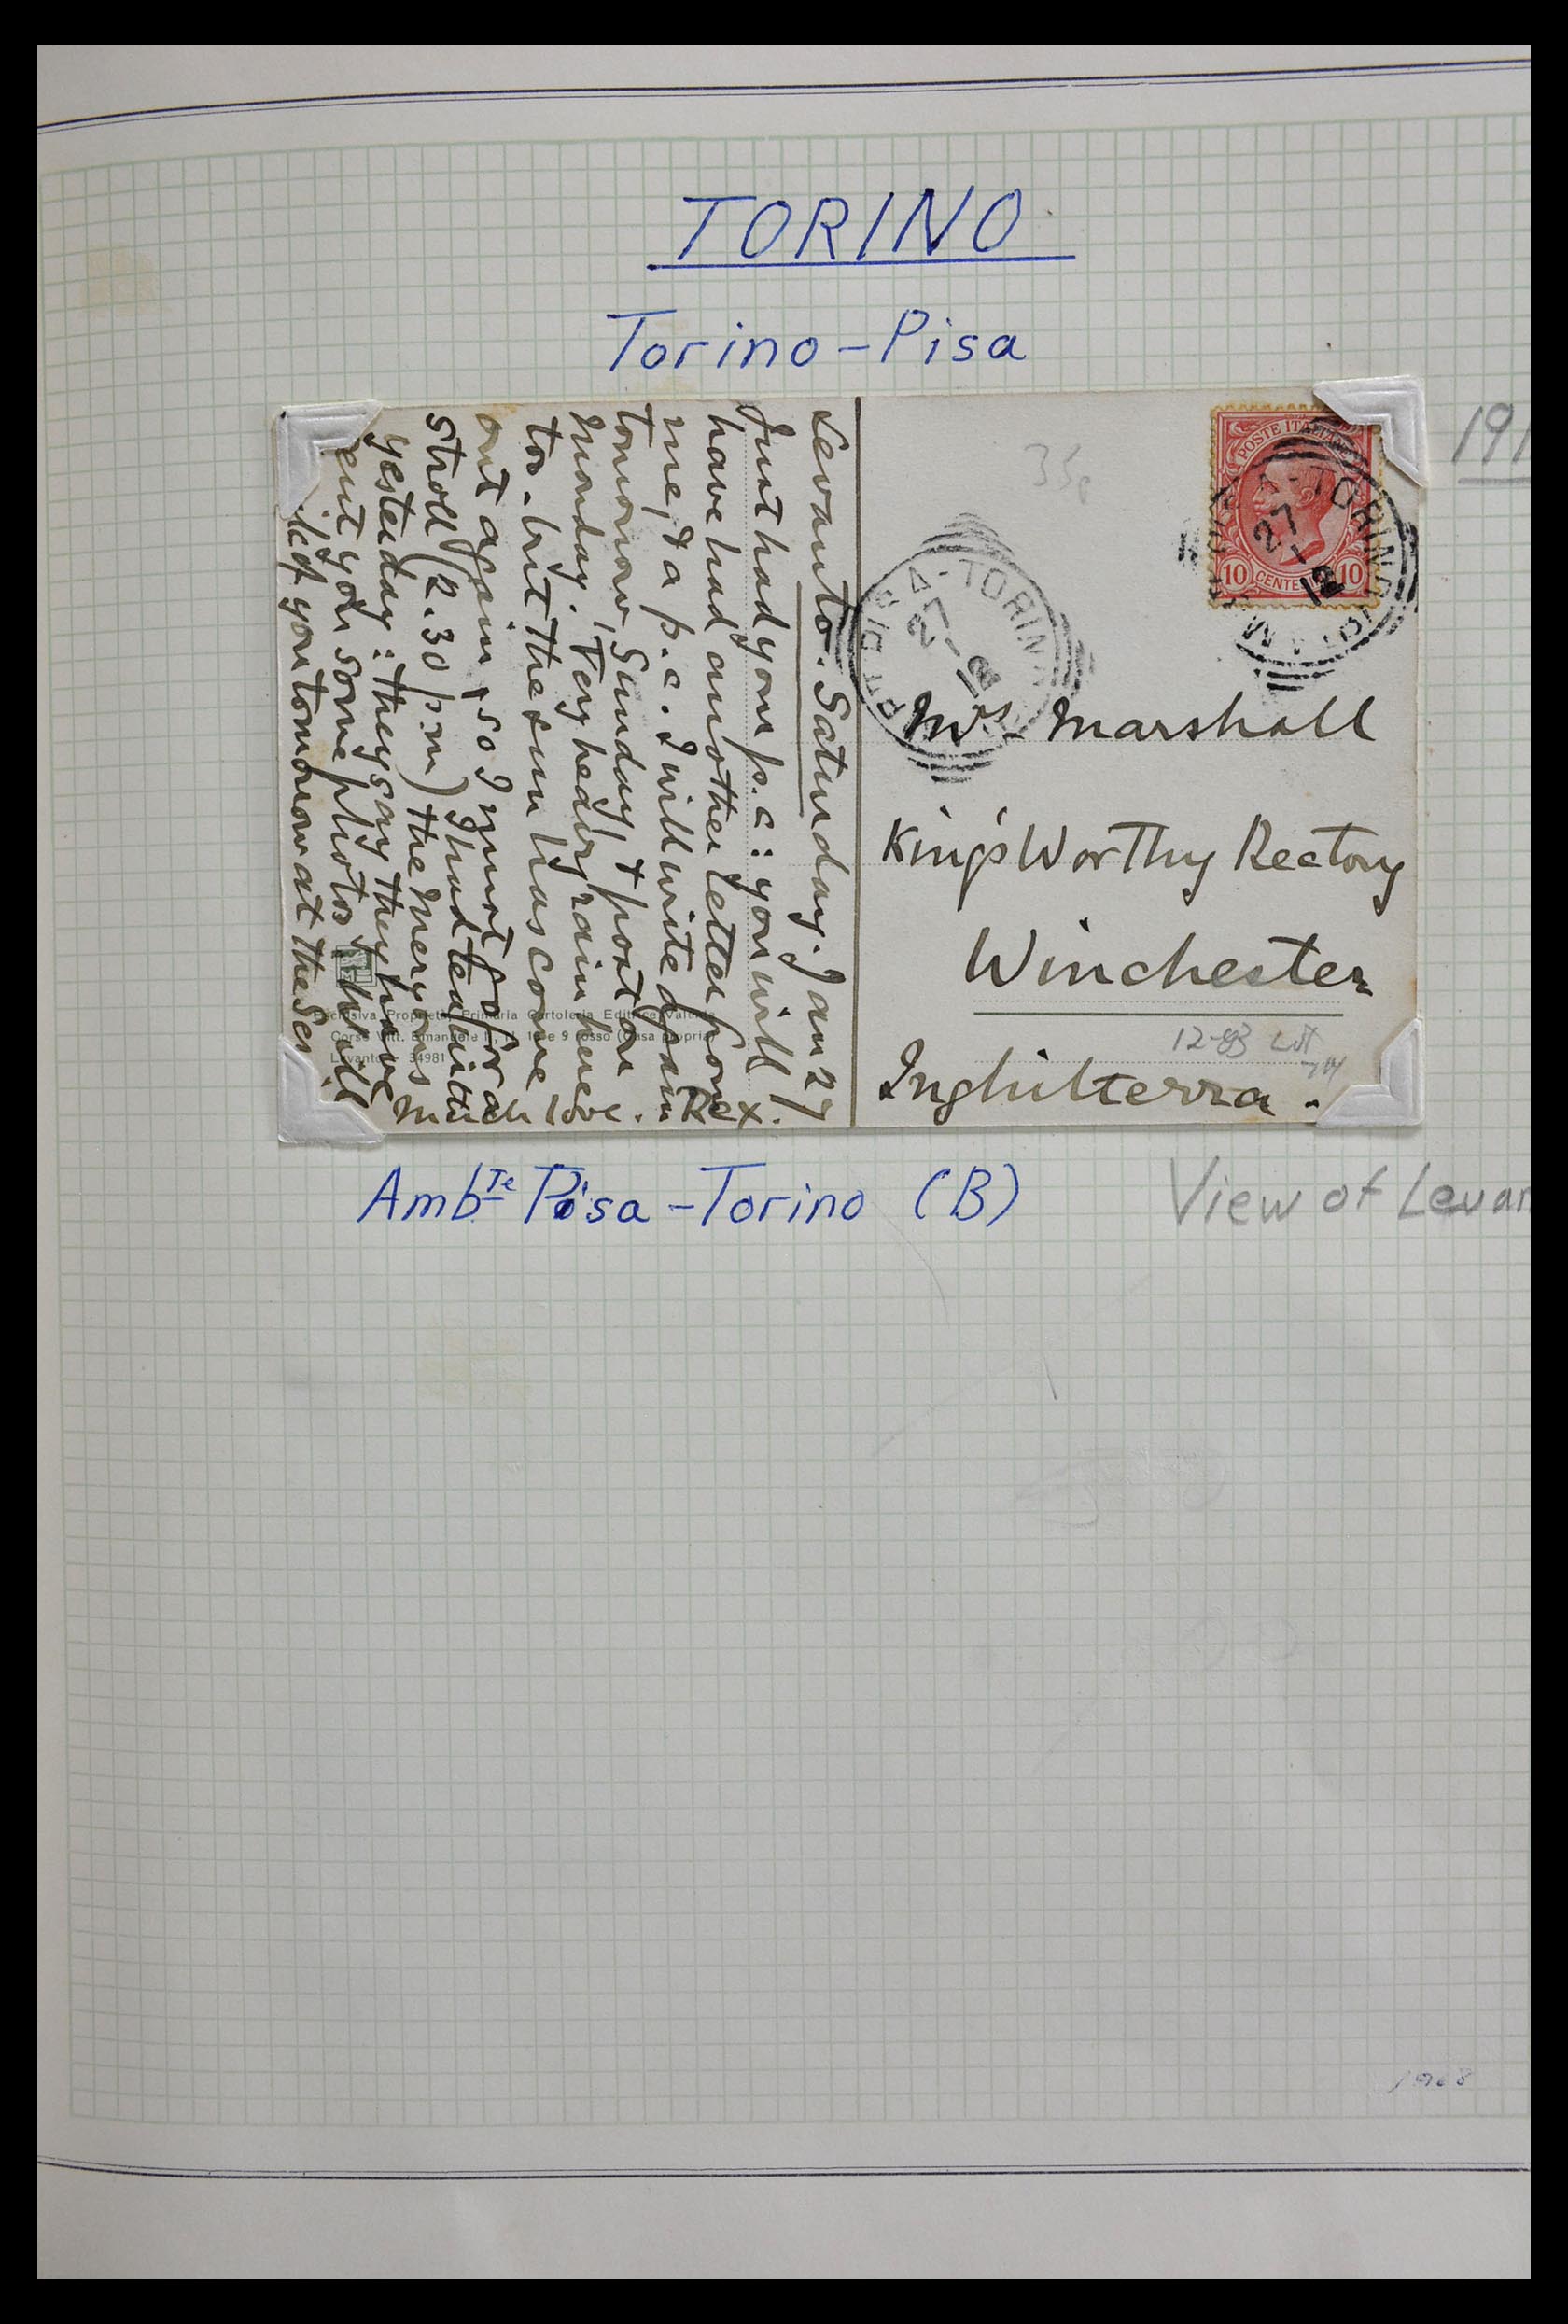 TORINO
Torino-Pisa
191
35p
POSTE ITALIANE
10 CENTES 10
PISA-TORINO
27
1
12
PISA-TORIN
27
1
12
Levanto. Saturday. Jan 27
Just had your p.c: you will
have had another letter from
me, & a p.c. I will write again
tomorrow, Sunday, & post on
Monday. Very heavy rain here
too - but the sun has come
out again, so I must go for a
stroll (2.30 p.m) I had tea with
yesterday: they say they have
sent you some photos. I will
you tomorrow at the
much love. Rex.
Esclusiva Proprietà Primaria Cartoleria Editrice Valenta
Corso Vitt. Emanuele II, 9 rosso (Casa propria)
Levanto - 34981
Mrs Marshall
King's Worthy Rectory
Winchester
Inghilterra.
12-83 Lot
Ambte Pisa-Torino (B)
View of Levan
1968